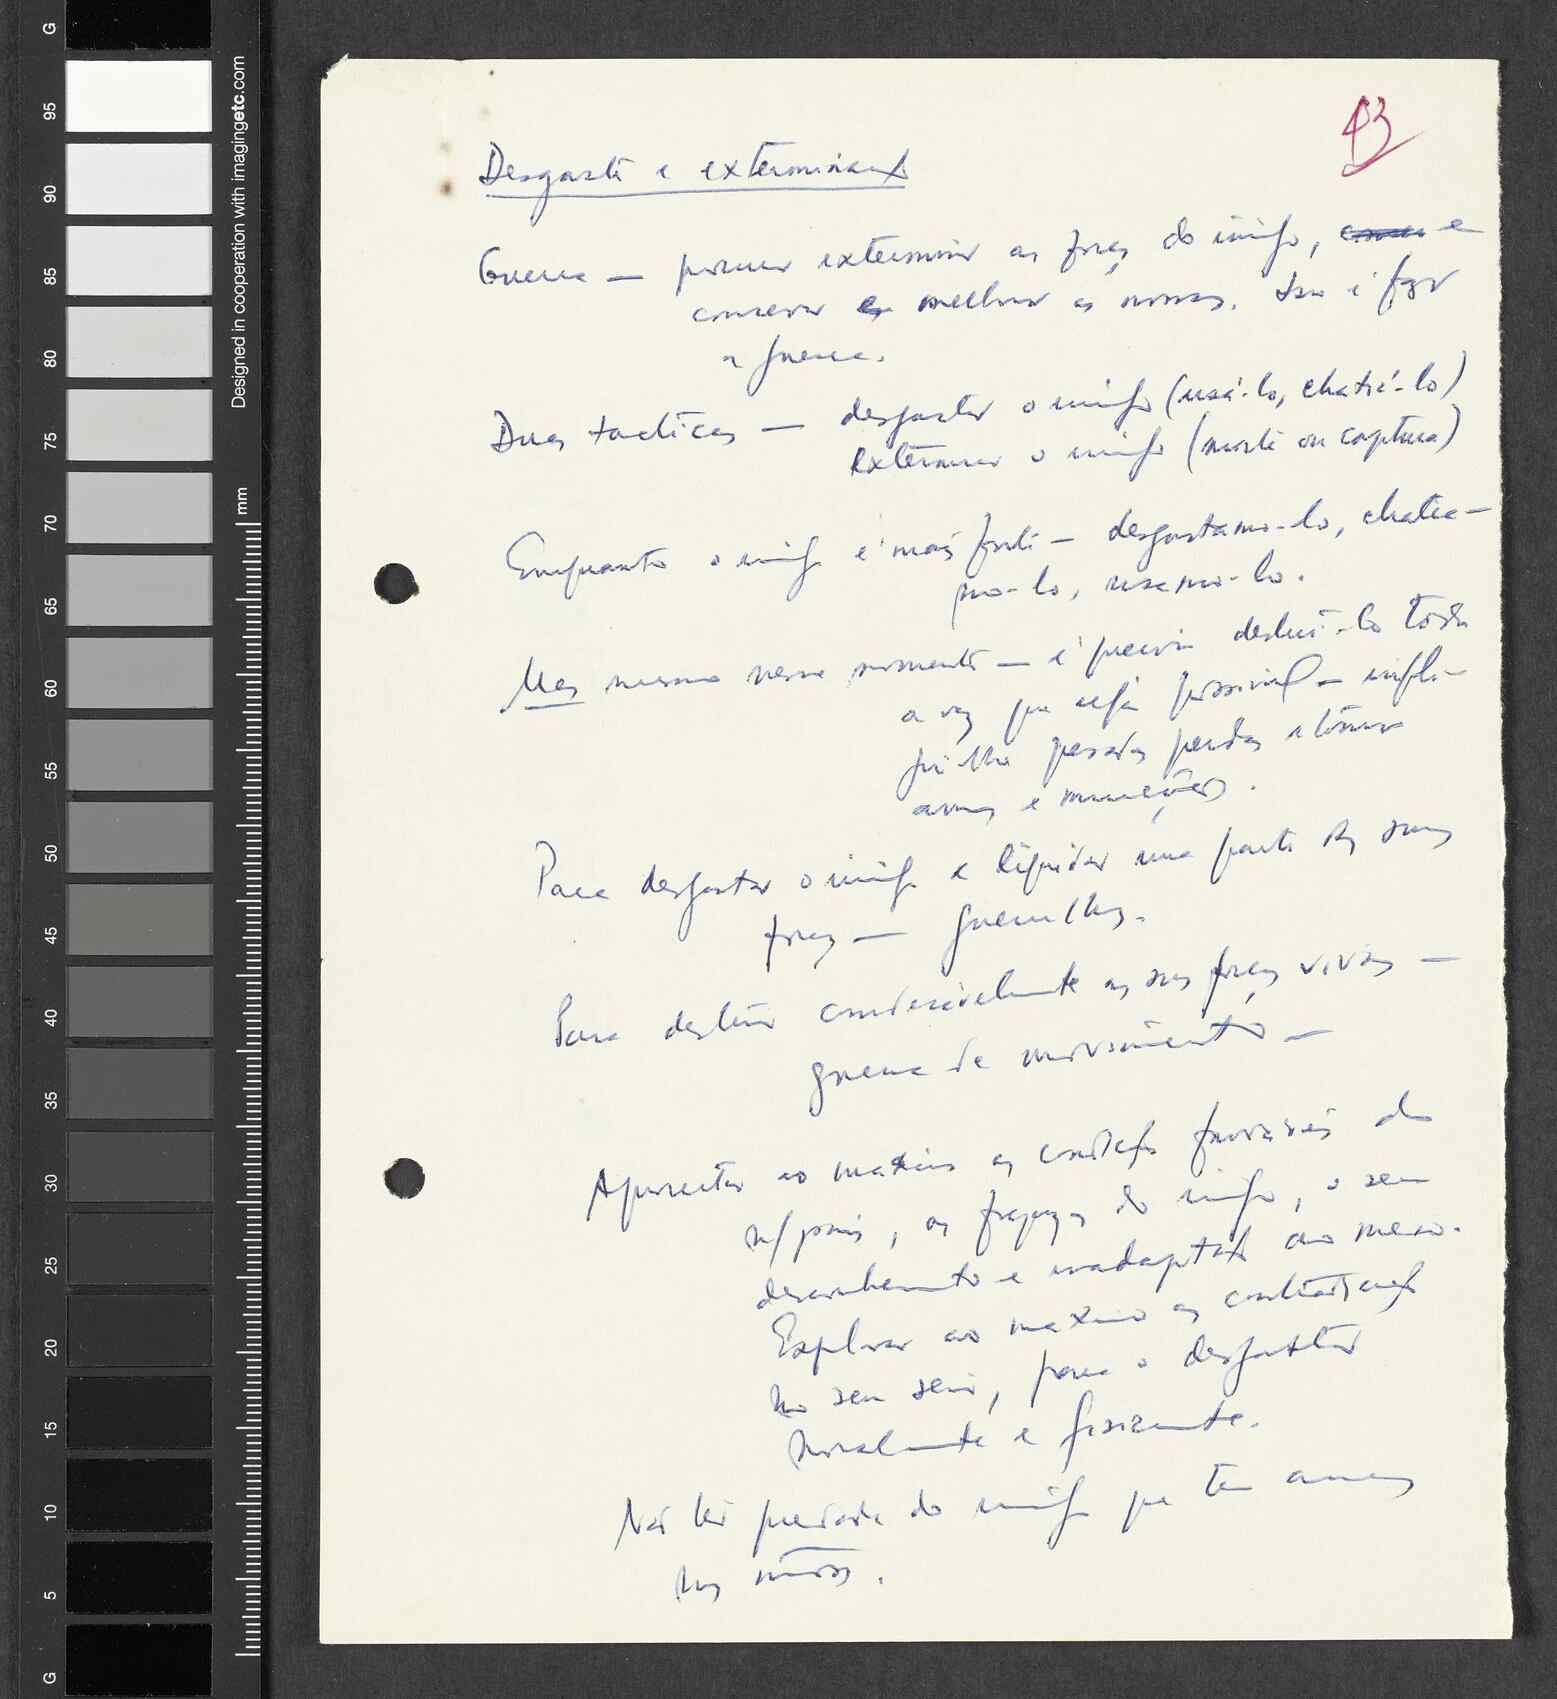 13
Desgaste e extermínio
Guerra — procurar exterminar as forças do inimigo, e
conservar e melhorar as nossas. Isso é fazer
a guerra.
Duas tácticas — desgastar o inimigo (usá-lo, chateá-lo)
exterminar o inimigo (morte ou captura)
Enquanto o inimigo é mais forte — desgastamo-lo, chatea-
mo-lo, usamo-lo.
Mas mesmo nesse momento — é preciso destruí-lo toda
a vez que seja possível — infli-
gir-lhe pesadas perdas e tomar
armas e munições.
Para desgastar o inimigo e liquidar uma parte das suas
forças — guerrilhas.
Para destruir consideravelmente as suas forças vivas —
guerra de movimento —
Aproveitar ao máximo as condições favoráveis do
n/ país, as fraquezas do inimigo, o seu
desconhecimento e inadaptação ao meio.
Explorar ao máximo as contradições
no seu seio, para o desgastar
moralmente e fisicamente.
Não ter piedade do inimigo que tem armas
nas mãos.
G 95 90 85 80 75 70 65 60 55 50 45 40 35 30 25 20 15 10 5 G
Designed in cooperation with imagingetc.com
mm